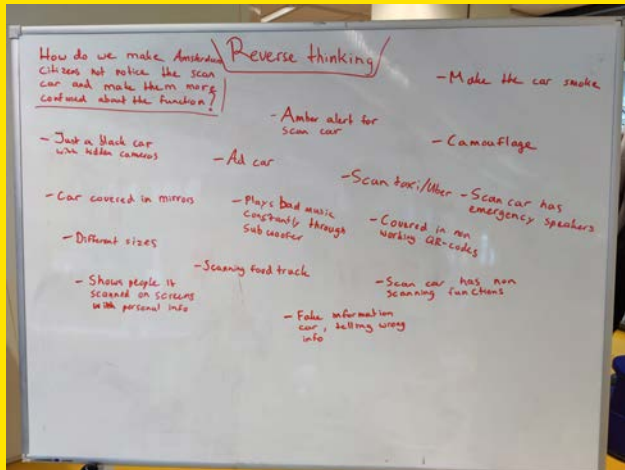 Reverse thinking
How do we make Amsterdam
citizens not notice the scan
car and make them more
confused about the function?
- Make the car smoke
- Amber alert for
scan car
- Camouflage
- Just a black car
with hidden cameras
- Ad car
- Scan taxi/Uber
- Scan car has
emergency speakers
- Car covered in mirrors
- Plays bad music
constantly through
subwoofer
- Covered in non
working QR-codes
- Different sizes
- Scanning food truck
- Shows people it
scanned on screens
with personal info
- Scan car has non
scanning functions
- Fake information
car, telling wrong
info